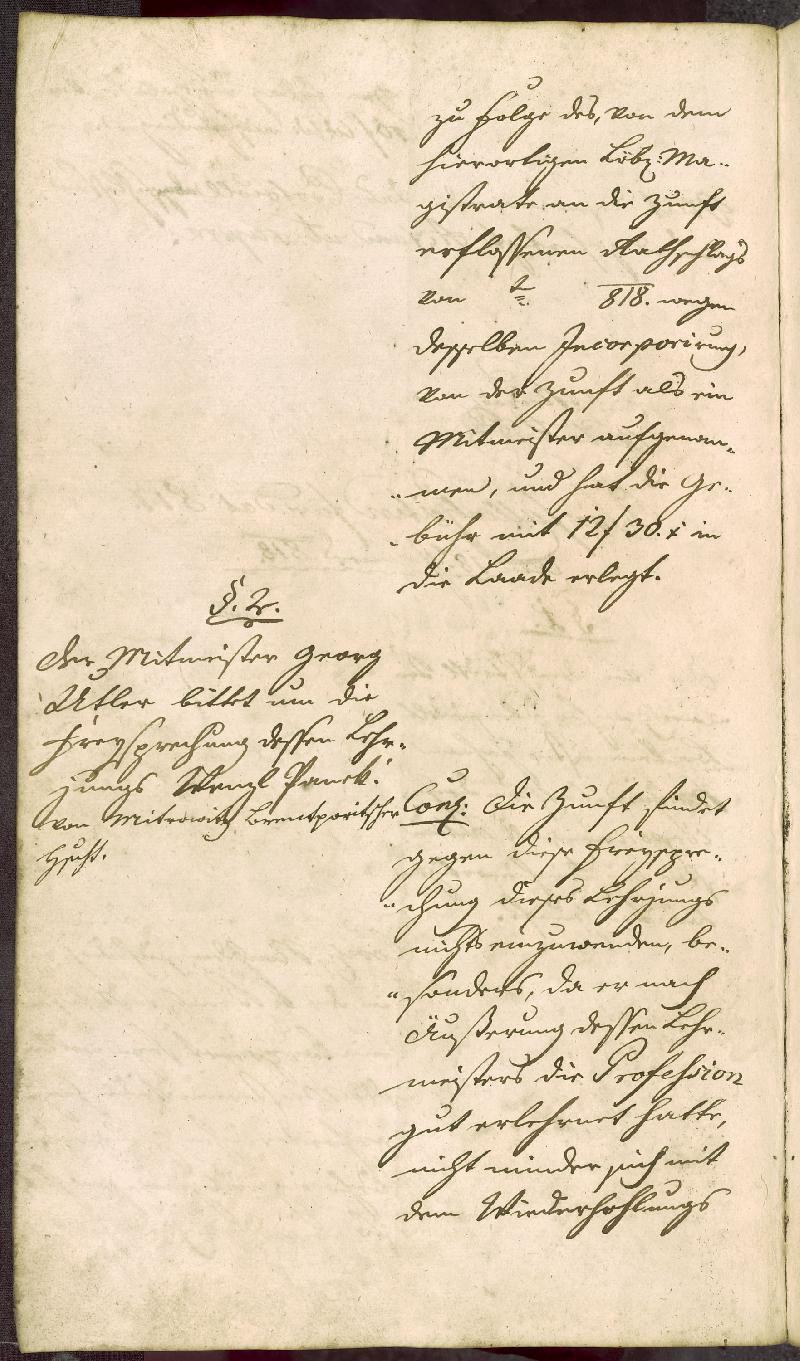 zu Folge des, von dem
hierortigen Löbl: Ma-
gistrate an die Zunft
erflossenen Rathschlags
von 818. wegen
desselben Incorporirung,
von der Zunft als ein
Mitmeister aufgenom-
men, und hat die Ge-
bühr mit 12f 30.x in
die Laade erlegt.
§. 2.
Der Mitmeister Georg
Utler bittet um die
Freysprechung dessen Lehr-
jungs Wenzl Panek.
von Mitrowitz
Hscht.
Conz: Die Zunft findet
gegen diese Freyspre-
chung dieses Lehrjungs
nichts einzuwenden, be-
sonders, da er nach
Äußerung dessen Lehr-
meisters die Profession
gut erlehrnet hatte,
nicht minder sich mit
dem Wiederhohlungs